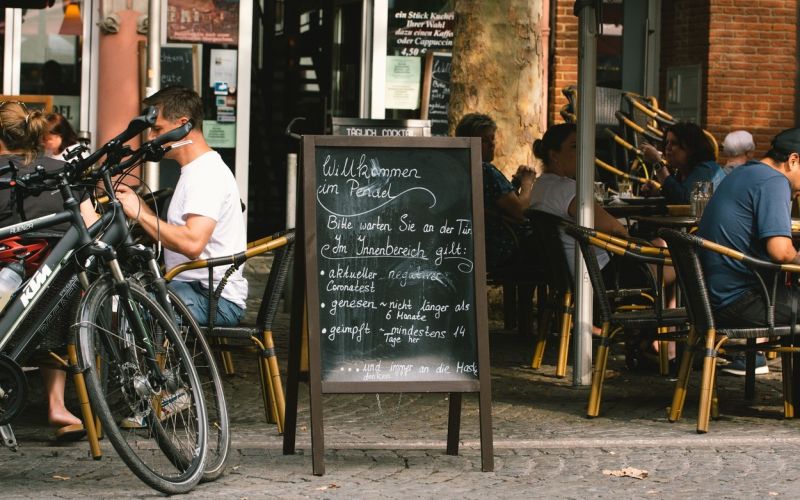 ein Stück Kuchen
Ihrer Wahl
dazu einen Kaffee
oder Cappuccino
4,50
TÄGLICH COCKTAIL
Willkommen
im Pendel
Bitte warten Sie an der Tür.
Im Innenbereich gilt:
• aktueller negativer
Coronatest
• genesen ~ nicht länger als
6 Monate
• geimpft ~ mindestens 14
Tage her
... und immer an die Maske
denken
KTM